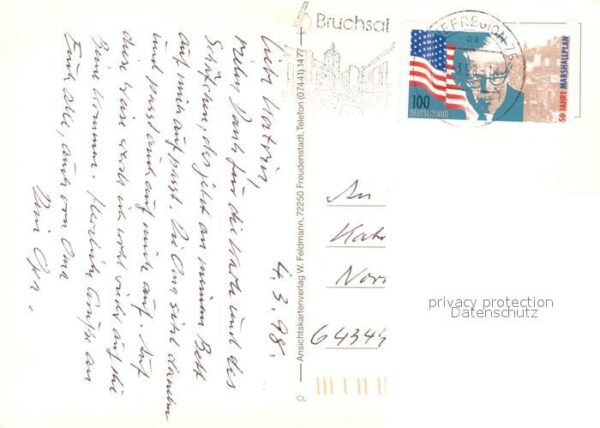 4.3.98.
Liebe Katrin,
vielen Dank für die Karte und das
Schäfchen, das jetzt an meinem Bett
auf mich aufpasst. Die Oma sitzt daneben
und passt auch auf mich auf. Auf
diese Weise werde ich wohl nicht auf die
Beine kommen. Herzliche Grüße an
Euch alle, auch von Oma
Dein Opa.
Ansichtskartenverlag W. Feldmann, 72250 Freudenstadt, Telefon (07441) 1477
CL
Bruchsal
BRIEFREGION 76
100
DEUTSCHLAND
50 JAHRE MARSHALLPLAN
An
Kat
Nor
64349
privacy protection
Datenschutz